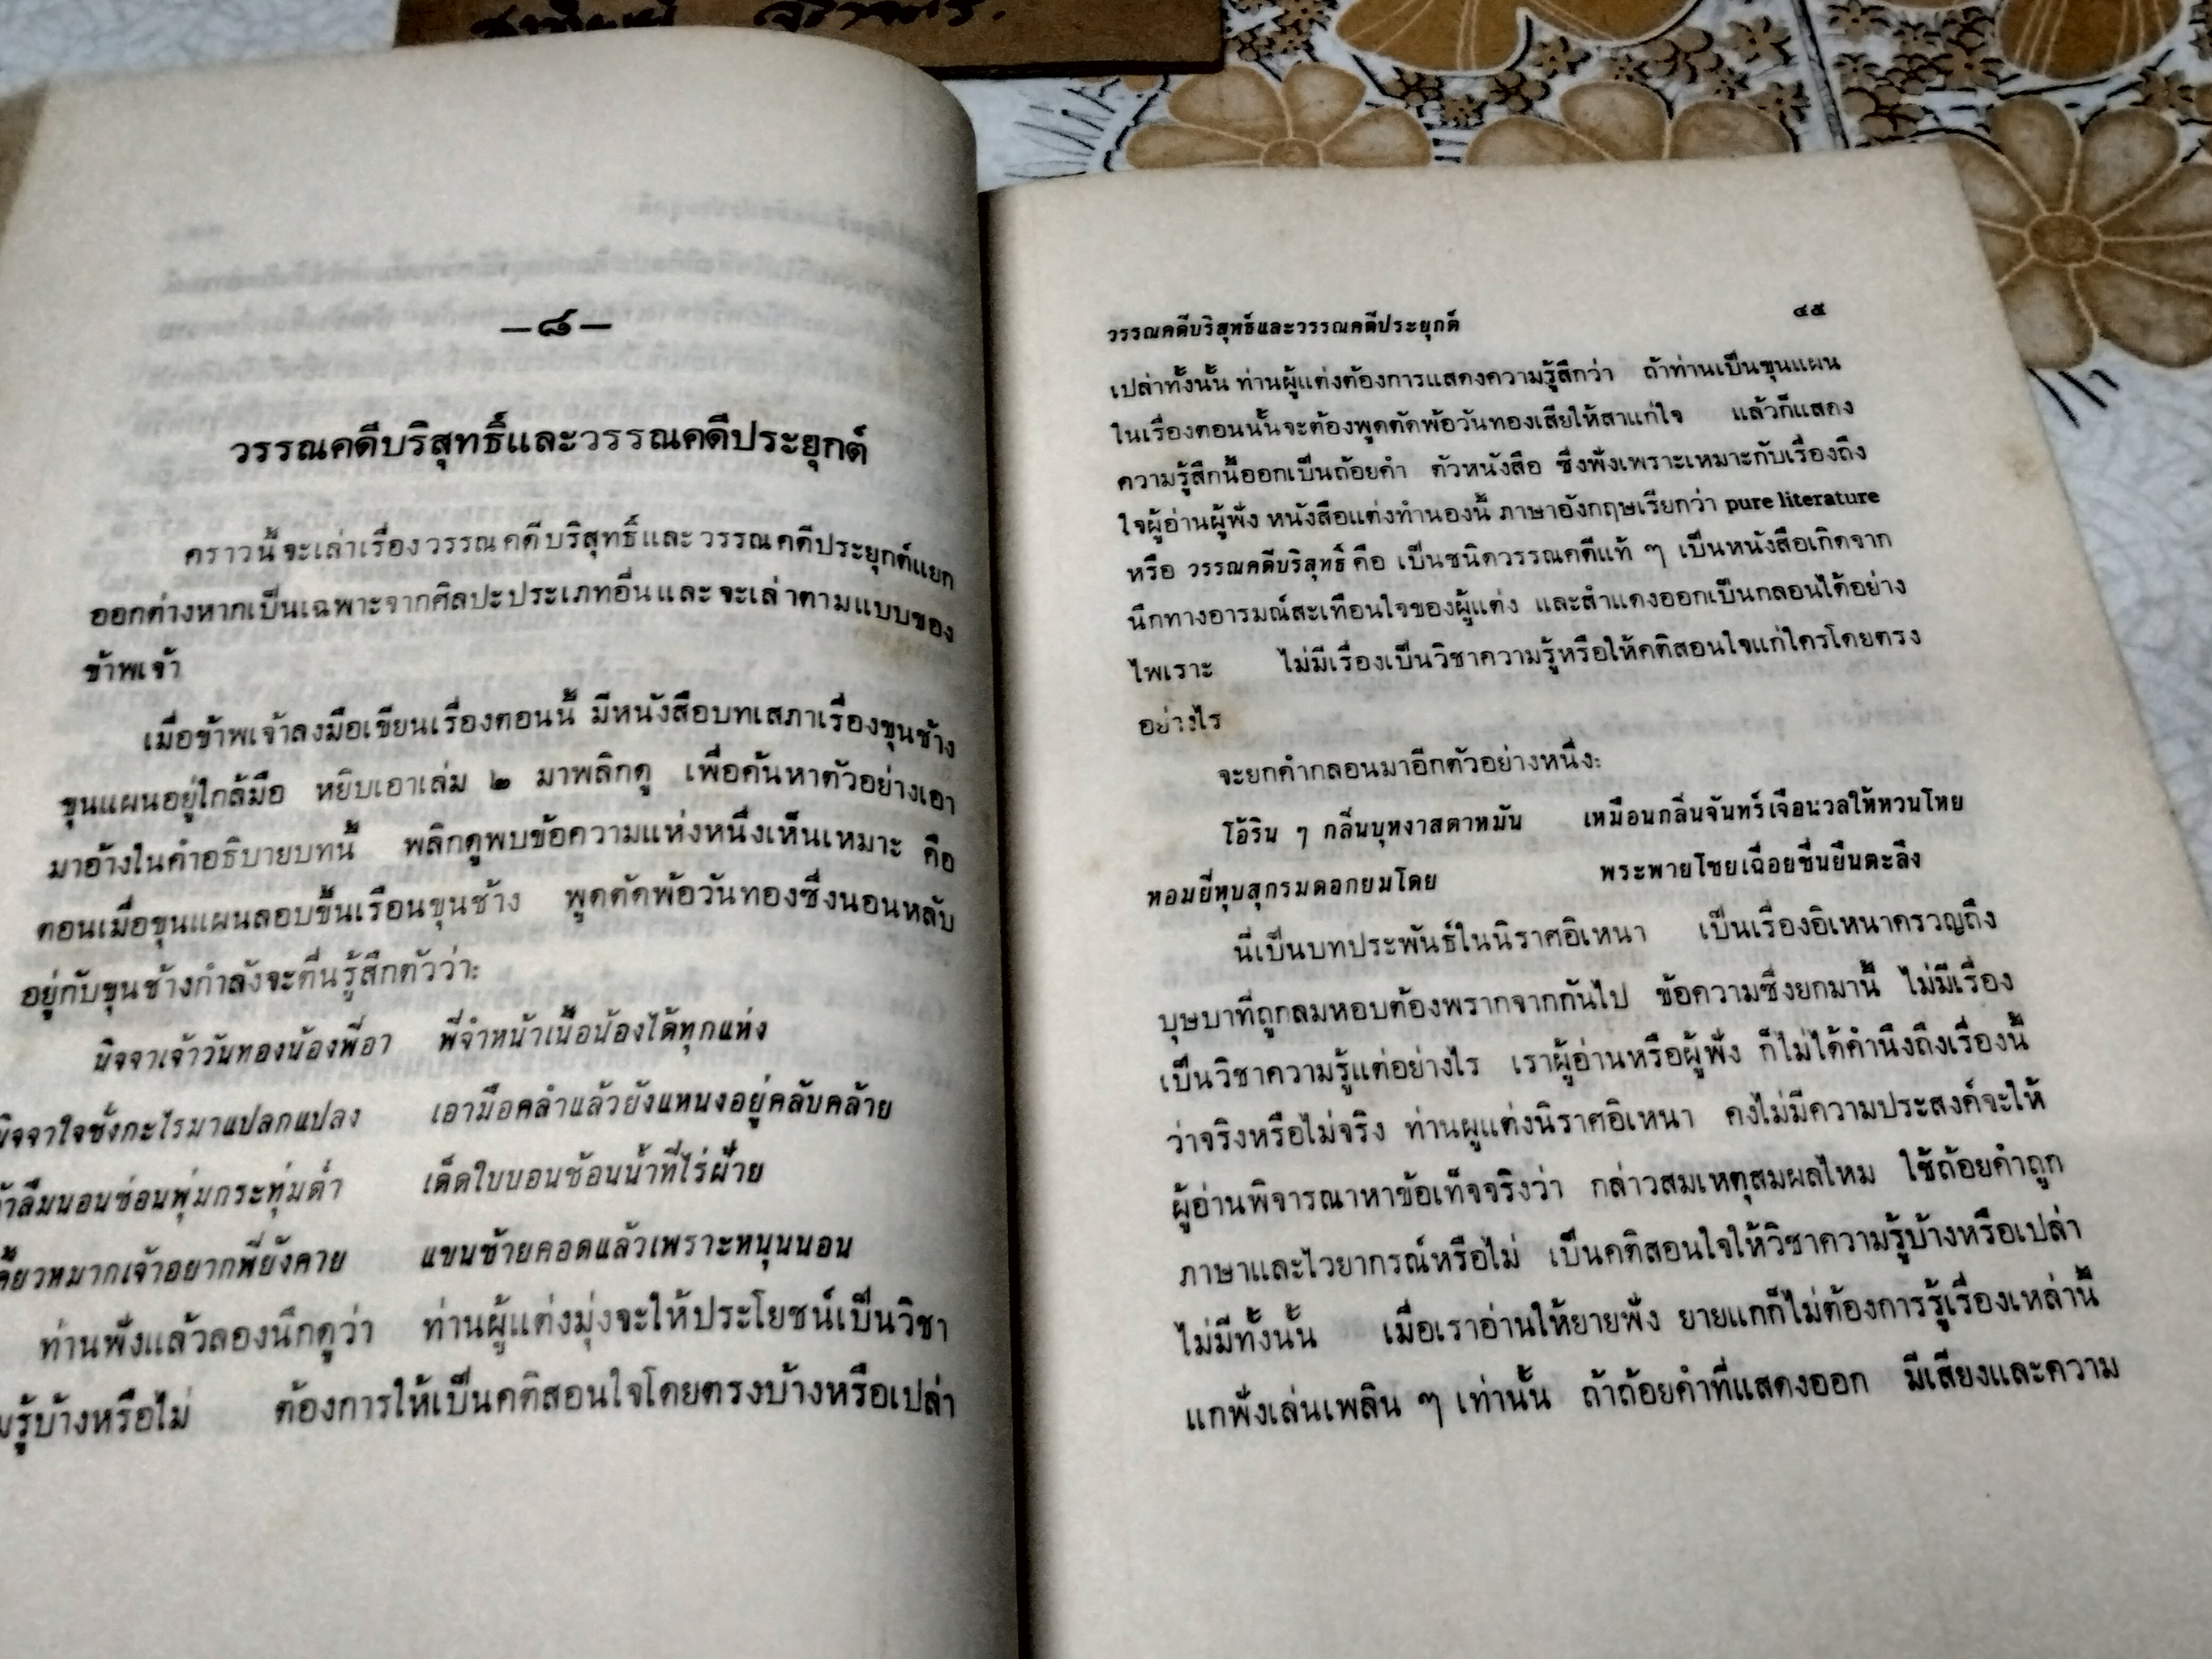 —๘—
วรรณคดีบริสุทธิ์และวรรณคดีประยุกต์
คราวนี้จะเล่าเรื่องวรรณคดีบริสุทธิ์และวรรณคดีประยุกต์แยก
ออกต่างหากเป็นเฉพาะจากศิลปะประเภทอื่นและจะเล่าตามแบบของ
ข้าพเจ้า
เมื่อข้าพเจ้าลงมือเขียนเรื่องตอนนี้ มีหนังสือบทเสภาเรื่องขุนช้าง
ขุนแผนอยู่ใกล้มือ หยิบเอาเล่ม ๒ มาพลิกดู เพื่อค้นหาตัวอย่างเอา
มาอ้างในคำอธิบายบทนี้ พลิกดูพบข้อความแห่งหนึ่งเห็นเหมาะ คือ
ตอนเมื่อขุนแผนลอบขึ้นเรือนขุนช้าง พูดตัดพ้อวันทองซึ่งนอนหลับ
อยู่กับขุนช้างกำลังจะตื่นรู้สึกตัวว่า:
นิจจาเจ้าวันทองน้องพี่อา พี่จำหน้าเนื้อน้องได้ทุกแห่ง
นิจจาใจช่างกะไรมาแปลกแปลง เอามือคลำแล้วยังแหนงอยู่คลับคล้าย
ลืมนอนซ่อนพุ่มกระทุ่มต่ำ เด็ดใบบอนช้อนน้ำที่ไร่ฝ้าย
เคี้ยวหมากเจ้าอยากพี่ยังคาย แขนซ้ายคอดแล้วเพราะหนุนนอน
ท่านฟังแล้วลองนึกดูว่า ท่านผู้แต่งมุ่งจะให้ประโยชน์เป็นวิชา
รู้บ้างหรือไม่ ต้องการให้เป็นคติสอนใจโดยตรงบ้างหรือเปล่า
วรรณคดีบริสุทธิ์และวรรณคดีประยุกต์ ๔๕
เปล่าทั้งนั้น ท่านผู้แต่งต้องการแสดงความรู้สึกว่า ถ้าท่านเป็นขุนแผน
ในเรื่องตอนนั้นจะต้องพูดตัดพ้อวันทองเสียให้สาแก่ใจ แล้วก็แสดง
ความรู้สึกนี้ออกเป็นถ้อยคำ ตัวหนังสือ ซึ่งฟังเพราะเหมาะกับเรื่องถึง
ใจผู้อ่านผู้ฟัง หนังสือแต่งทำนองนี้ ภาษาอังกฤษเรียกว่า pure literature
หรือ วรรณคดีบริสุทธิ์ คือ เป็นชนิดวรรณคดีแท้ ๆ เป็นหนังสือเกิดจาก
นึกทางอารมณ์สะเทือนใจของผู้แต่ง และสำแดงออกเป็นกลอนได้อย่าง
ไพเราะ ไม่มีเรื่องเป็นวิชาความรู้หรือให้คติสอนใจแก่ใครโดยตรง
อย่างไร
จะยกคำกลอนมาอีกตัวอย่างหนึ่ง:
โอ้ริน ๆ กลิ่นบุหงาสตาหมัน เหมือนกลิ่นจันทร์เจือนวลให้หวนโหย
หอมยี่หุบสุกรมดอกยมโดย พระพายโชยเฉื่อยชื่นยืนตะลึง
นี่เป็นบทประพันธ์ในนิราศอิเหนา เป็นเรื่องอิเหนาครวญถึง
บุษบาที่ถูกลมหอบต้องพรากจากกันไป ข้อความซึ่งยกมานี้ ไม่มีเรื่อง
เป็นวิชาความรู้แต่อย่างไร เราผู้อ่านหรือผู้ฟัง ก็ไม่ได้คำนึงถึงเรื่องนี้
ว่าจริงหรือไม่จริง ท่านผู้แต่งนิราศอิเหนา คงไม่มีความประสงค์จะให้
ผู้อ่านพิจารณาหาข้อเท็จจริงว่า กล่าวสมเหตุสมผลไหม ใช้ถ้อยคำถูก
ภาษาและไวยากรณ์หรือไม่ เป็นคติสอนใจให้วิชาความรู้บ้างหรือเปล่า
ไม่มีทั้งนั้น เมื่อเราอ่านให้ยายฟัง ยายแกก็ไม่ต้องการรู้เรื่องเหล่านี้
แกฟังเล่นเพลิน ๆ เท่านั้น ถ้าถ้อยคำที่แสดงออก มีเสียงและความ